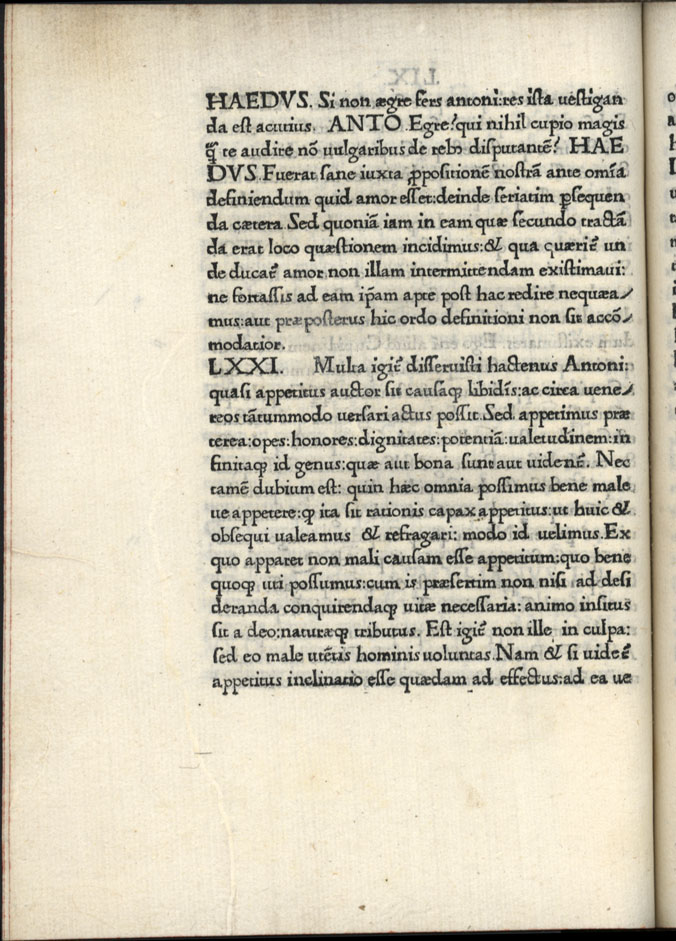 HAEDVS. Si non ægre fers antoni:res ista uestigan
da est acutius. ANTO. Egre?qui nihil cupio magis
q̃ te audire nõ uulgaribus de rebꝰ disputantē? HAE
DVS.Fuerat sane iuxta ꝓpositionē nostrã ante omĩa
definiendum quid amor esset:deinde seriatim ꝑsequen
da cætera.Sed quoniã iam in eam quæ secundo tractã
da erat loco quæstionem incidimus:& qua quærit᷑ un
de ducat᷑ amor non illam intermittendam existimaui:
ne fortassis ad eam ip̃am apte post hac redire nequæa/
mus:aut præposterus hic ordo definitioni non sit accõ/
modatior.
LXXI. Multa igit᷑ disseruisti hactenus Antoni:
quasi appetitus auctor sit causaqꝫ libidĩs:ac circa uene/
reos tãtummodo uersari actus possit.Sed appetimus præ
terea:opes:honores:dignitates:potentiã:ualetudinem:in
finitaqꝫ id genus:quæ aut bona sunt aut uident᷑. Nec
tamē dubium est: quin hæc omnia possimus bene male
ue appetere:qꝫ ita sit rationis capax appetitus:ut huic &
obsequi ualeamus & refragari: modo id uelimus.Ex
quo apparet non mali causam esse appetitum:quo bene
quoqꝫ uti possumus:cum is præsertim non nisi ad desi
deranda conquirendaqꝫ uitæ necessaria: animo insitus
sit a deo:naturæqꝫ tributus. Est igit᷑ non ille in culpa:
sed eo male utētis hominis uoluntas.Nam & si uidet᷑
appetitus inclinatio esse quædam ad effectus:ad ea ue